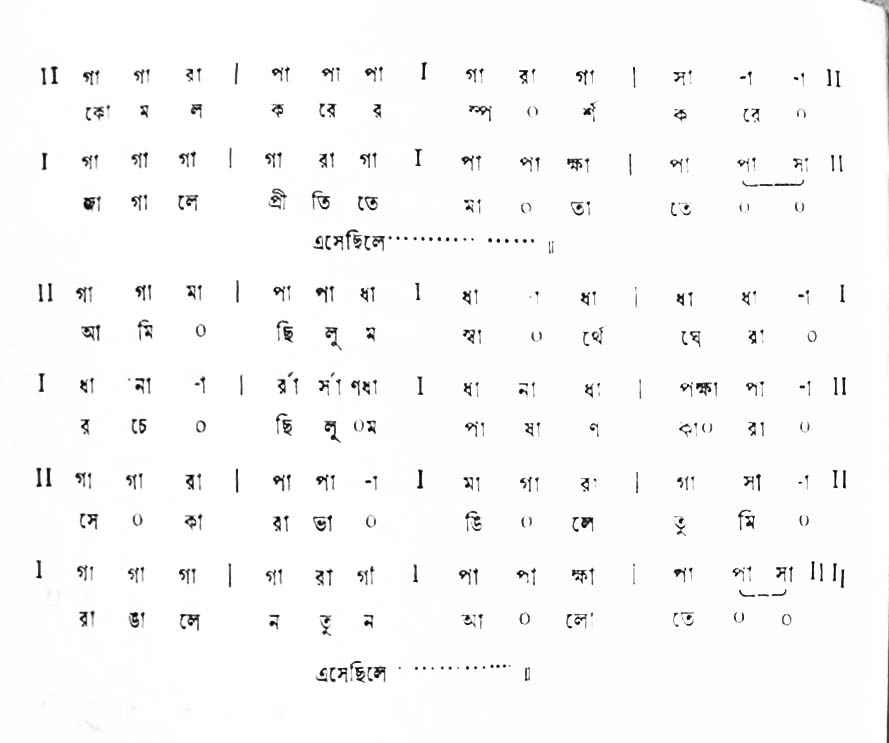 II গা গা রা | পা পা পা I গা রা গা | সা -া -া II
কো ম ল ক রে র স্প ০ র্শ ক রে ০
I গা গা গা | গা রা গা I পা পা ক্ষা | পা পা সা II
জা গা লে প্রী তি তে মা ০ তা তে ০ ০
এসেছিলে·················· ॥
II গা গা মা | পা পা ধা I ধা -া ধা | ধা ধা -া I
আ মি ০ ছি লু ম স্বা ০ র্থে ঘে রা ০
I ধা না -া | র্রা র্সা ণধা I ধা না ধা | পক্ষা পা -া II
র চে ০ ছি লু ০ম পা ষা ণ কা০ রা ০
II গা গা রা | পা পা -া I মা গা রা | গা সা -া II
সে ০ কা রা ভা ০ ঙি ০ লে তু মি ০
I গা গা গা | গা রা গা I পা পা ক্ষা | পা পা সা II II
রা ঙা লে ন তু ন আ ০ লো তে ০ ০
এসেছিলে·············· ॥